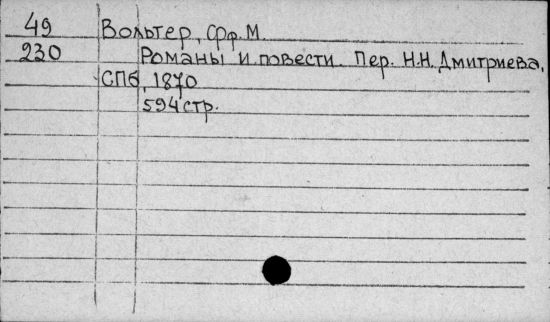 49 Вольтер, Фр. М.
230 Романы и повести. Пер. Н.Н. Дмитриева,
СПб, 1870
594 стр.